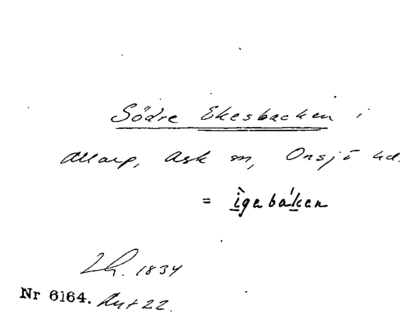 Södre Ekesbacken i
Allarp, Ask sn, Onsjö hd.
= ìgebáken
Lh. 1834
Nr 6164. Rut 22.